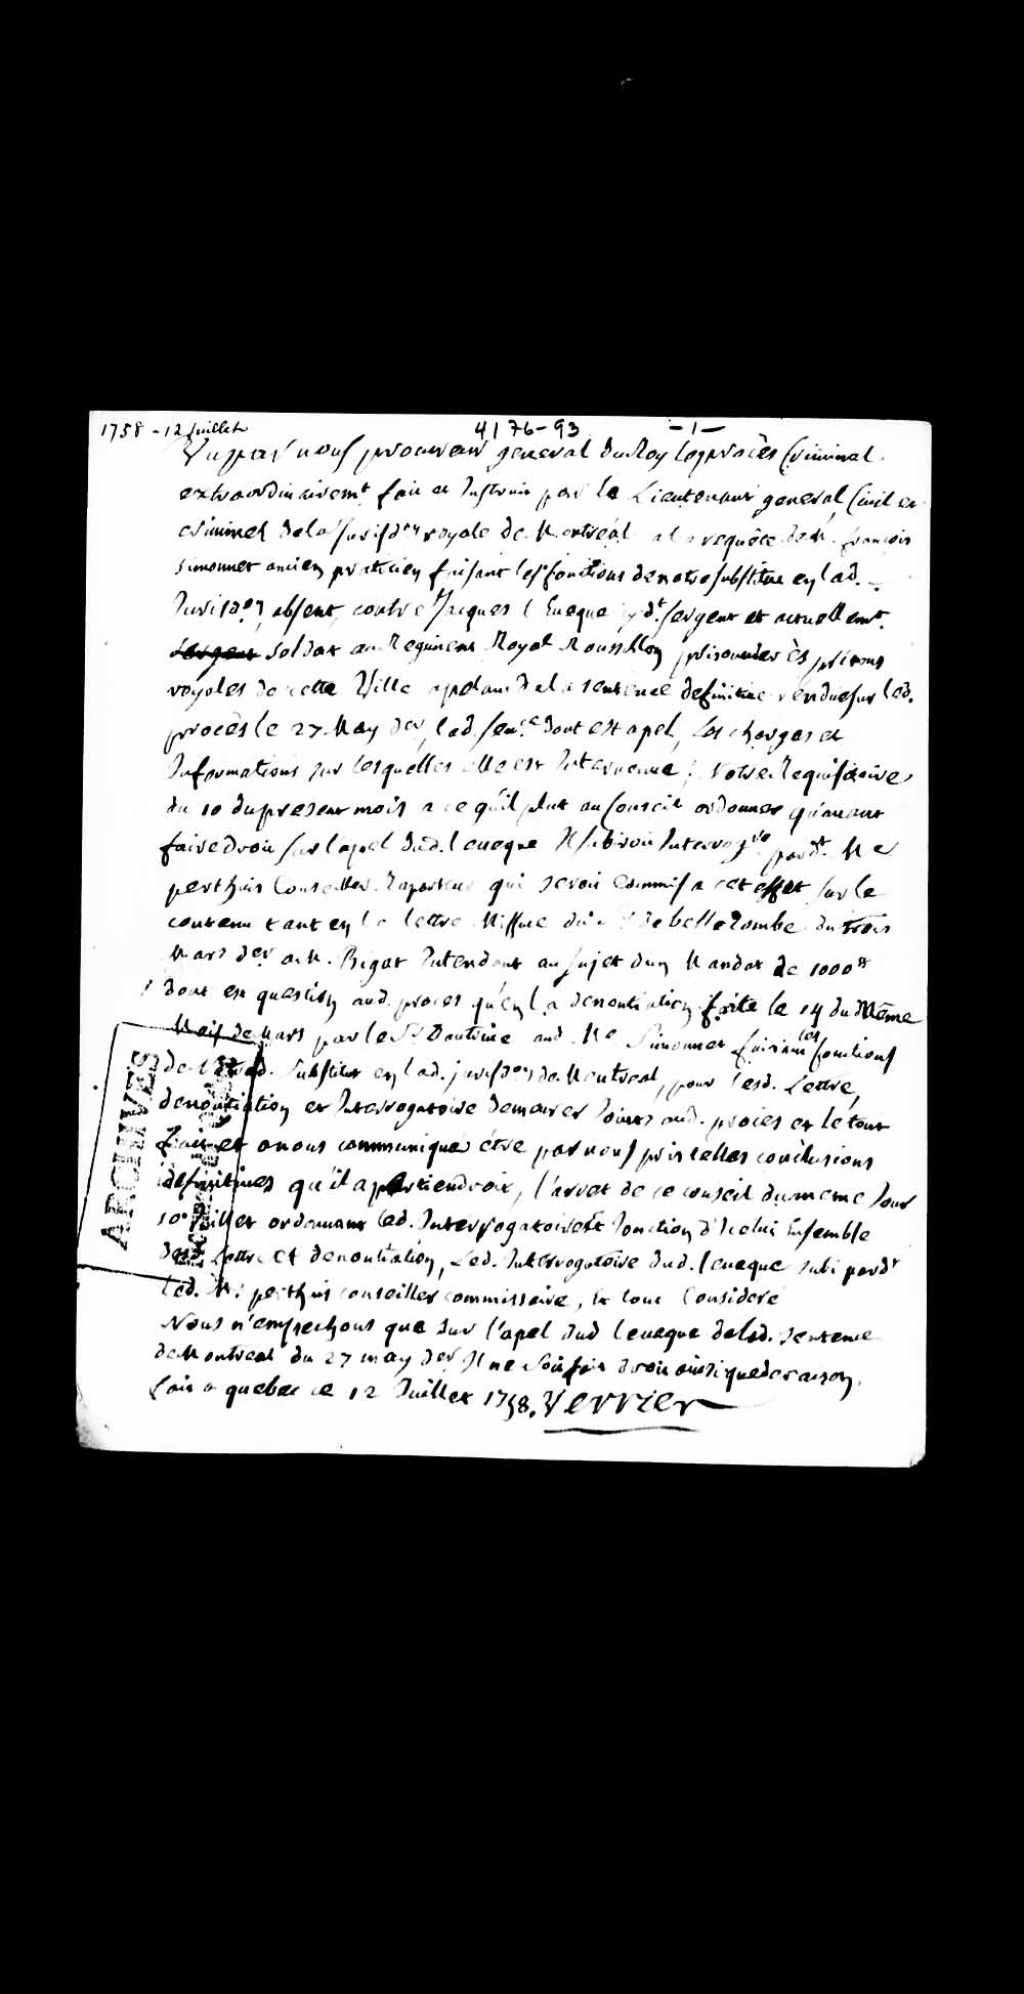 1758 - 12 Juillet 4176-93 -1-
Vu par nous procureur general du Roy le procès Criminel
extraordinairemt fait et Instruit par le Lieutenant general Civil et
criminel de la Jurisdon royale de Montréal a la requête de Me françois
simonnet ancien praticien faisant les fonctions de notre substitut en lad.
Jurison absent, contre Jacques l'Eveque cy dt sergent et actuellemt.
soldat au Regiment Royal Roussillon prisonnier ès prisons
royales de cette Ville apelant de la sentence definitive rendue sur led.
procès le 27 May der, lad. sence dont est apel, Les charges et
Informations sur lesquelles elle est Intervenue; Notre Requisitoire
du 10 du present mois a ce qu'il plut au Conseil ordonner qu'avant
faire droit sur l'apel dud. leveque Il subiroit Interrogre pardt. Me
perthuis Conseiller Raporteur qui seroit Commis a cet effet sur le
contenu tant en la lettre Missive du Sr de bellecombe du trois
Mars der a M. Bigot Intendant au sujet d'un Mandat de 1000tt
dont est question aud. proces qu'en la denontiation faite le 14 du Même
Mois de Mars par le Sr aud. Me Simonnet faisant les fonctions
de Substitut en lad. jurisdon de Montreal, pour lesd. Lettre,
denontiation et Interrogatoire demeurer Joints aud. procès et le tout
fait et a nous communiqué être par nous pris telles conclusions
definitives qu'il apartiendroit, l'arret de ce conseil du meme Jour
10 Juillet ordonnant led. Interrogatoire et Jonction d'Icelui Ensemble
desd. Lettre et denontiation, Led. Interrogatoire dud. leveque subi pardt
led. Me perthuis conseiller commissaire, le tout Consideré
Nous n'empechons que sur l'apel dud leveque de lad. sentence
de Montreal du 27 may der Il ne soit fait droit ainsi que de raison.
fait a quebec ce 12 Juillet 1758. Verrier
ARCHIVES